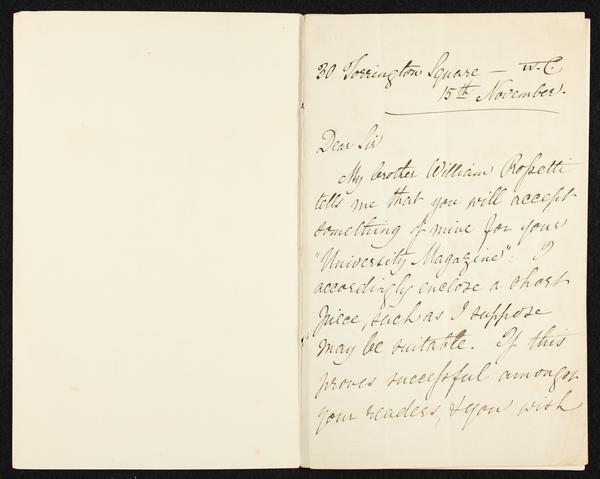 30 Torrington Square — W.C.
15th November.
Dear Sir
My brother William Rossetti
tells me that you will accept
something of mine for your
"University Magazine": I
accordingly enclose a short
piece, such as I suppose
may be suitable. If this
proves successful amongst
your readers, & you wish